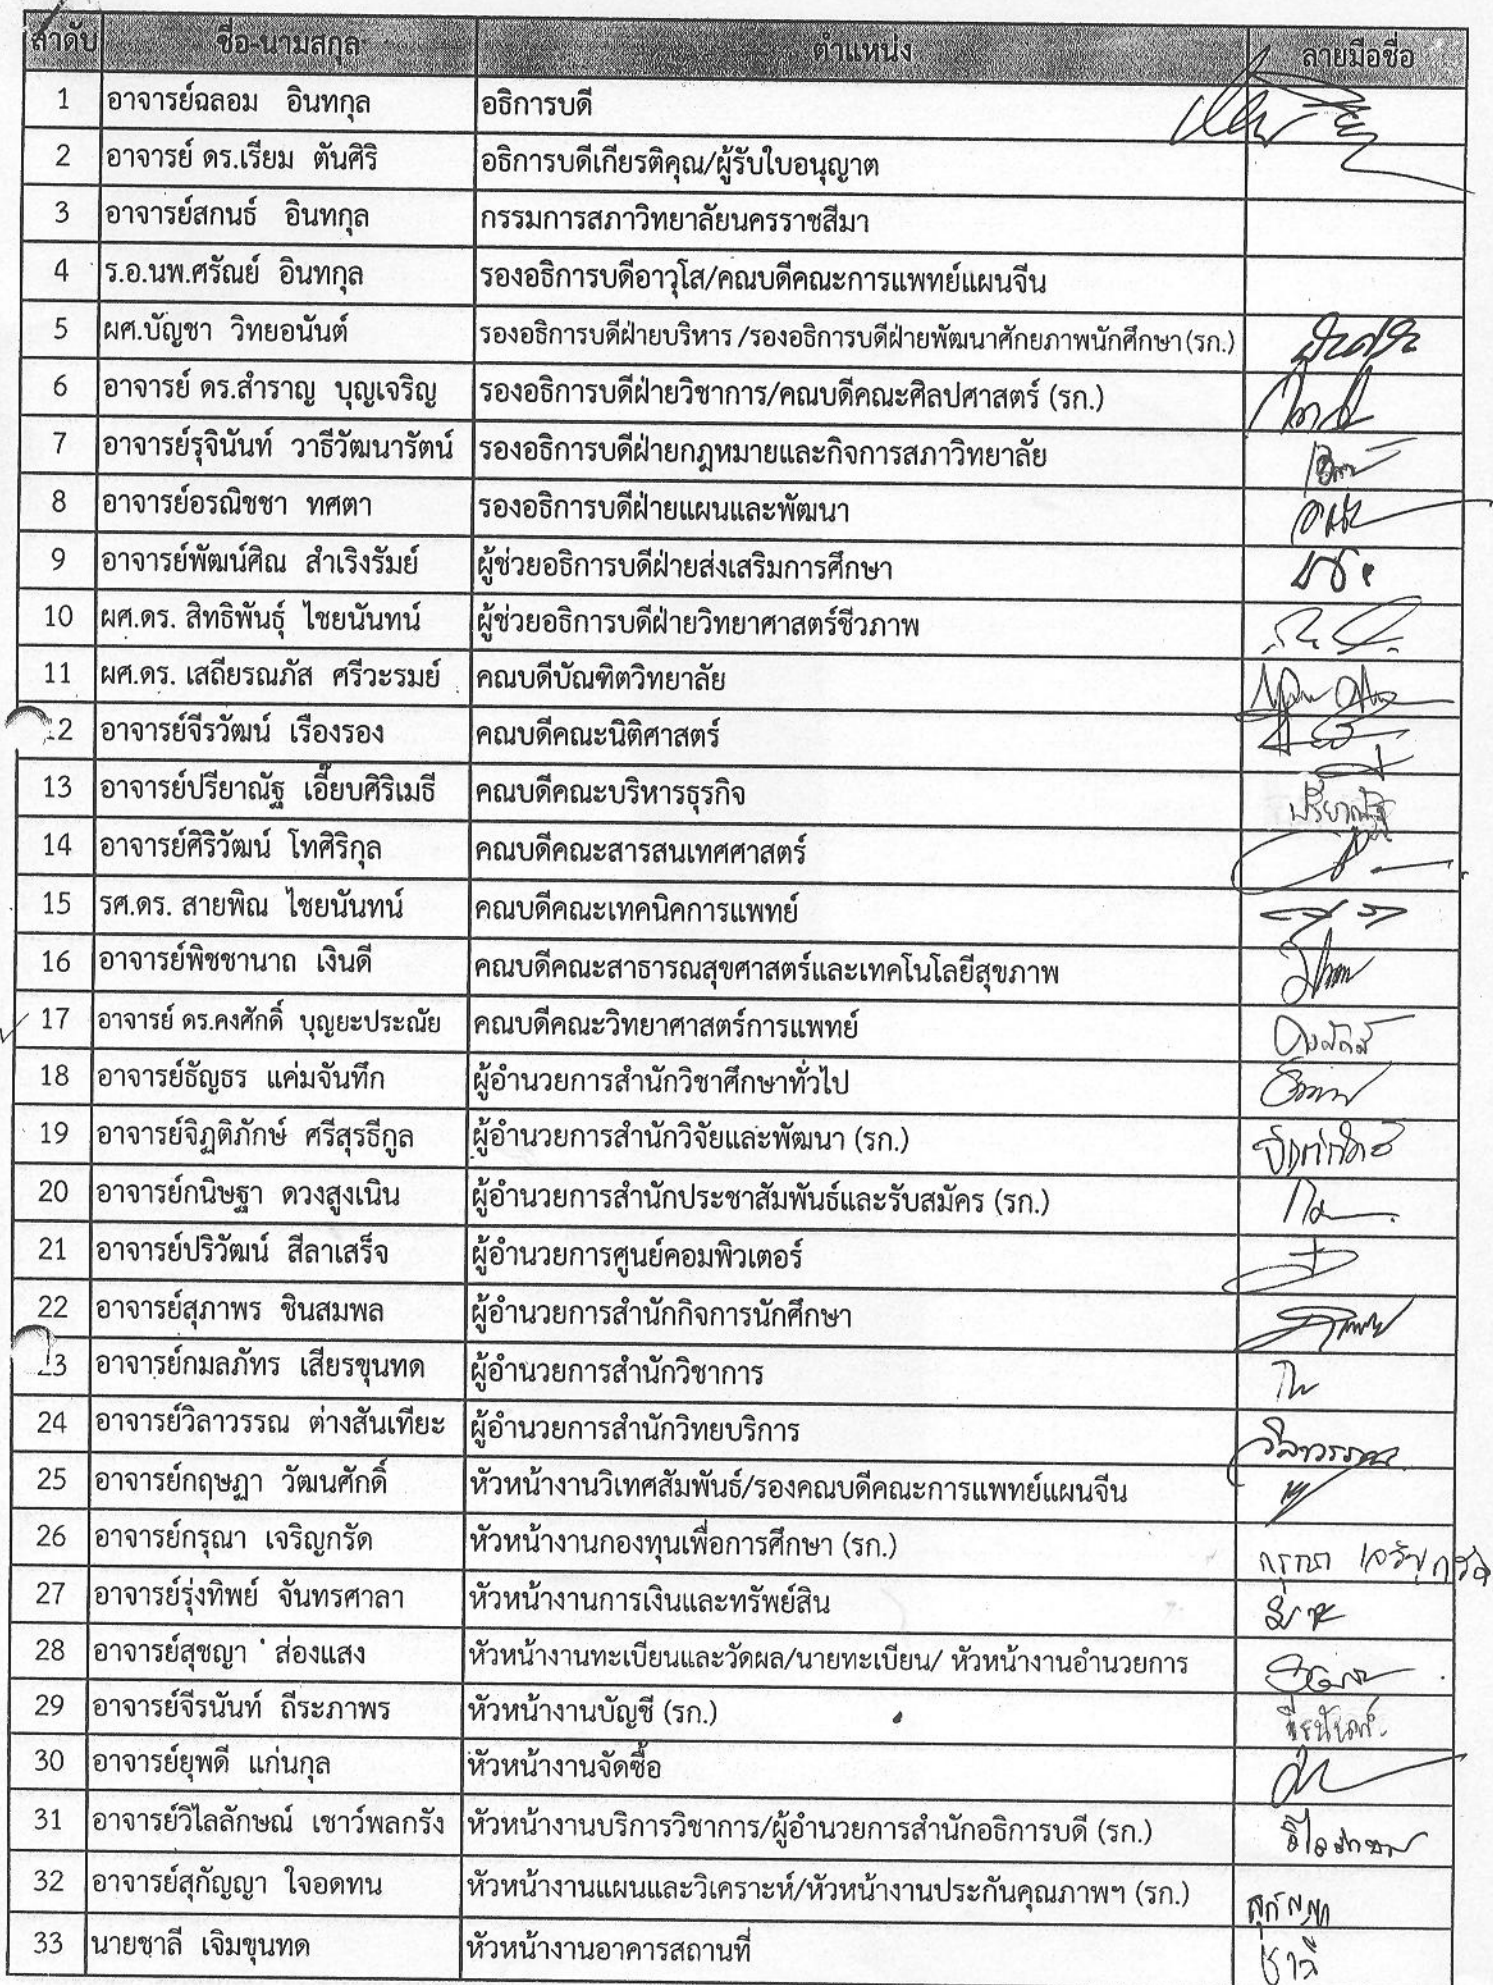 ลำดับ ชื่อ-นามสกุล ตำแหน่ง ลายมือชื่อ
1 อาจารย์ฉลอม อินทกุล อธิการบดี
2 อาจารย์ ดร.เรียม ตันศิริ อธิการบดีเกียรติคุณ/ผู้รับใบอนุญาต
3 อาจารย์สกนธ์ อินทกุล กรรมการสภาวิทยาลัยนครราชสีมา
4 ร.อ.นพ.ศรัณย์ อินทกุล รองอธิการบดีอาวุโส/คณบดีคณะการแพทย์แผนจีน
5 ผศ.บัญชา วิทยอนันต์ รองอธิการบดีฝ่ายบริหาร /รองอธิการบดีฝ่ายพัฒนาศักยภาพนักศึกษา (รก.)
6 อาจารย์ ดร.สำราญ บุญเจริญ รองอธิการบดีฝ่ายวิชาการ/คณบดีคณะศิลปศาสตร์ (รก.)
7 อาจารย์รุจินันท์ วาธีวัฒนารัตน์ รองอธิการบดีฝ่ายกฎหมายและกิจการสภาวิทยาลัย
8 อาจารย์อรณิชชา ทศตา รองอธิการบดีฝ่ายแผนและพัฒนา
9 อาจารย์พัฒน์ศิณ สำเริงรัมย์ ผู้ช่วยอธิการบดีฝ่ายส่งเสริมการศึกษา
10 ผศ.ดร. สิทธิพันธุ์ ไชยนันทน์ ผู้ช่วยอธิการบดีฝ่ายวิทยาศาสตร์ชีวภาพ
11 ผศ.ดร. เสถียรณภัส ศรีวะรมย์ คณบดีบัณฑิตวิทยาลัย
12 อาจารย์จีรวัฒน์ เรืองรอง คณบดีคณะนิติศาสตร์
13 อาจารย์ปรียาณัฐ เอี๊ยบศิริเมธี คณบดีคณะบริหารธุรกิจ ปรียาณัฐ
14 อาจารย์ศิริวัฒน์ โทศิริกุล คณบดีคณะสารสนเทศศาสตร์
15 รศ.ดร. สายพิณ ไชยนันทน์ คณบดีคณะเทคนิคการแพทย์
16 อาจารย์พิชชานาถ เงินดี คณบดีคณะสาธารณสุขศาสตร์และเทคโนโลยีสุขภาพ
17 อาจารย์ ดร.คงศักดิ์ บุญยะประณัย คณบดีคณะวิทยาศาสตร์การแพทย์ คงศักดิ์
18 อาจารย์ธัญธร แค่มจันทึก ผู้อำนวยการสำนักวิชาศึกษาทั่วไป
19 อาจารย์จิฏติภักษ์ ศรีสุรธีกูล ผู้อำนวยการสำนักวิจัยและพัฒนา (รก.)
20 อาจารย์กนิษฐา ดวงสูงเนิน ผู้อำนวยการสำนักประชาสัมพันธ์และรับสมัคร (รก.)
21 อาจารย์ปริวัฒน์ สีลาเสร็จ ผู้อำนวยการศูนย์คอมพิวเตอร์
22 อาจารย์สุภาพร ชินสมพล ผู้อำนวยการสำนักกิจการนักศึกษา
23 อาจารย์กมลภัทร เสียรขุนทด ผู้อำนวยการสำนักวิชาการ
24 อาจารย์วิลาวรรณ ต่างสันเทียะ ผู้อำนวยการสำนักวิทยบริการ วิลาวรรณ
25 อาจารย์กฤษฏา วัฒนศักดิ์ หัวหน้างานวิเทศสัมพันธ์/รองคณบดีคณะการแพทย์แผนจีน
26 อาจารย์กรุณา เจริญกรัด หัวหน้างานกองทุนเพื่อการศึกษา (รก.) กรุณา เจริญกรัด
27 อาจารย์รุ่งทิพย์ จันทรศาลา หัวหน้างานการเงินและทรัพย์สิน
28 อาจารย์สุชญา ส่องแสง หัวหน้างานทะเบียนและวัดผล/นายทะเบียน/ หัวหน้างานอำนวยการ
29 อาจารย์จีรนันท์ ถีระภาพร หัวหน้างานบัญชี (รก.) จีรนันท์
30 อาจารย์ยุพดี แก่นกุล หัวหน้างานจัดซื้อ
31 อาจารย์วิไลลักษณ์ เชาว์พลกรัง หัวหน้างานบริการวิชาการ/ผู้อำนวยการสำนักอธิการบดี (รก.)
32 อาจารย์สุกัญญา ใจอดทน หัวหน้างานแผนและวิเคราะห์/หัวหน้างานประกันคุณภาพฯ (รก.) สุกัญญา
33 นายชาลี เจิมขุนทด หัวหน้างานอาคารสถานที่ ชาลี